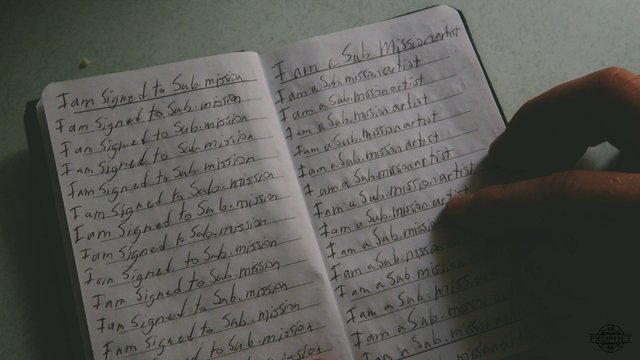 I am Signed to Sub.mission
I am Signed to Sub.mission
I am Signed to Sub.mission
I am Signed to Sub.mission
I am Signed to Sub.mission
I am Signed to Sub.mission
I am Signed to Sub.mission
I am Signed to Sub.mission
I am Signed to Sub.mission
I am Signed to Sub.mission
I am Signed to Sub.mission
I am Signed to Sub.mission
I am Signed to Sub.mission
I am a Sub.Mission artist
I am a Sub.mission artist
I am a Sub.mission artist
I am a Sub.mission artist
I am a Sub.mission artist
I am a Sub.mission artist
I am a Sub.mission artist
I am a Sub.mission artist
I am a Sub.mission artist
I am a Sub.mission
I am a Sub.mission
I am a Sub.mission
I am a Sub.mission
I am a Sub.mission
I am a Sub.mission
PROPHET